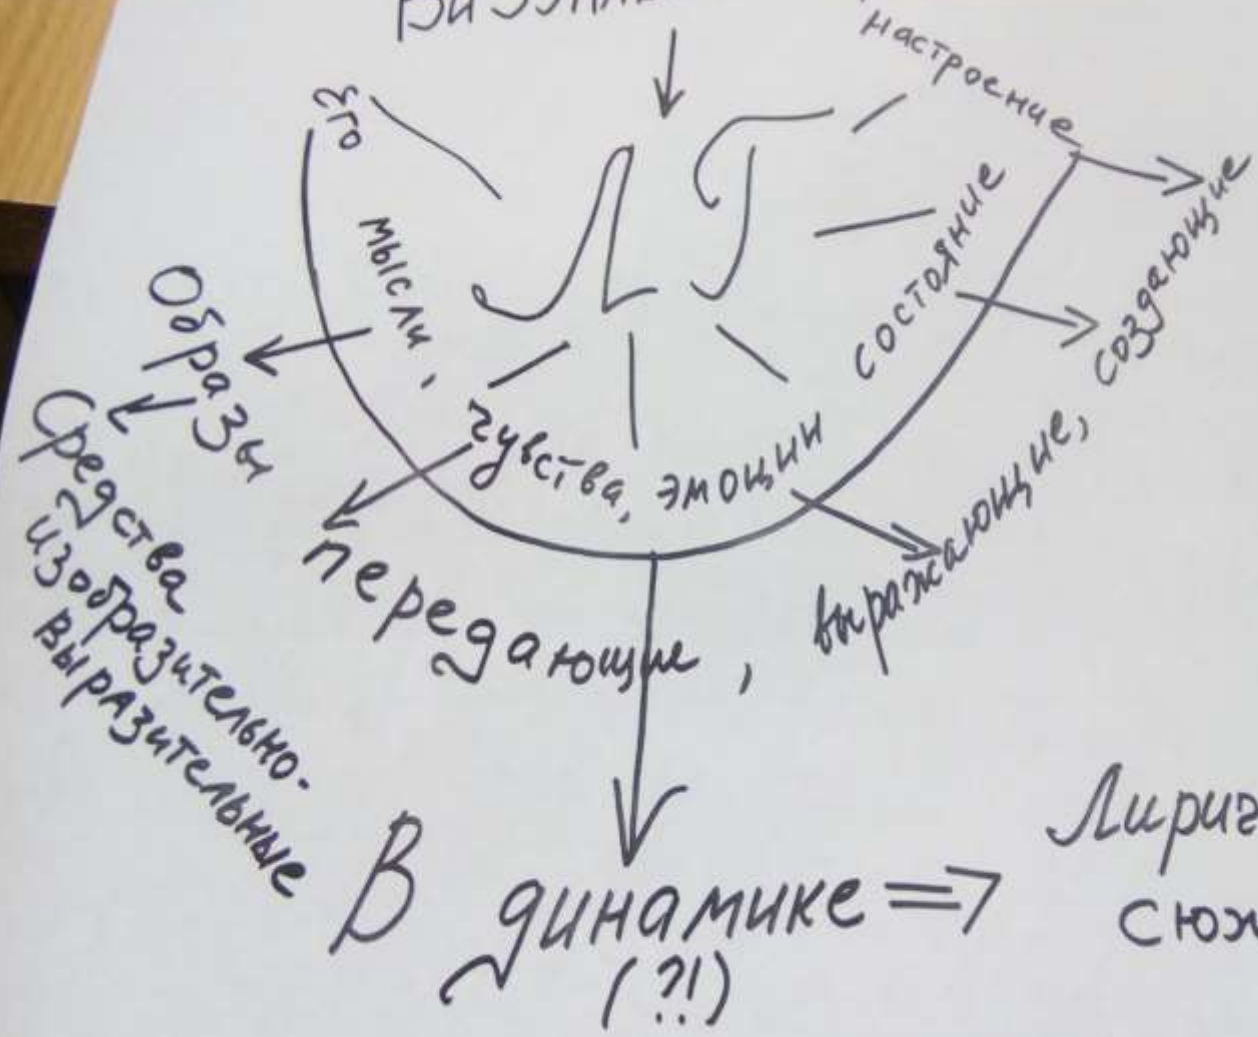 настроение
Его
ЛГ
мысли,
чувства, эмоции
состояние
Образы
Средства
изобразительно-
выразительные
передающие,
выражающие, создающие
В динамике ⇒
(?!)